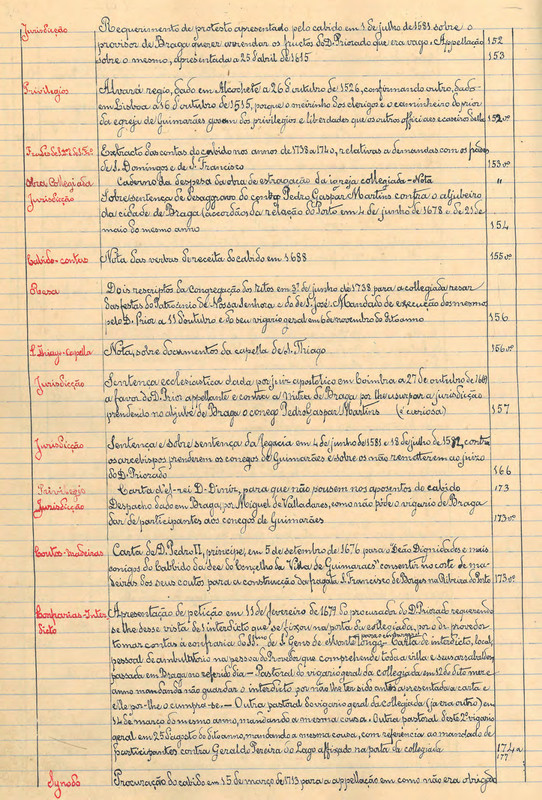 Jurisdicção Requerimento de protesto apresentado pelo cabido em 1 de julho de 1581 sobre o
provisor de Braga querer arrendar os fructos do D. Priorado que era vago. Appellação 152
sobre o mesmo, apresentada a 25 d'abril de 1615 153
Privilegios Alvará regio, dado em Alcochete a 26 d'outubro de 1526, confirmando outro, dado
em Lisboa a 16 d'outubro de 1515, porque o meirinho dos clerigos e o caminheiro do prior
da egreja de Guimarães gosem dos privilegios e liberdades que os outros officiaes e caseiros della 152vº
Extracto das contas do cabido nos annos de 1738 a 1740, relativas a demandas com os frades
de S. Domingos e de S. Francisco 153vº
Obras Collegiada Caderno da despesa da obra de estragação da igreja collegiada - Nota "
Jurisdicção Sobresentença de desaggravo do conego Pedro Gaspar Martins contra o aljubeiro
da cidade de Braga (accordãos da relação do Porto em 4 de junho de 1678 e de 21 de
maio do mesmo anno 154
Cabido-contas Nota das verbas de receita do cabido em 1688 155vº
Resa Dois rescriptos da Congregação dos Ritos em 3 de junho de 1738 para a collegiada resar
das festas do Patrocinio de Nossa Senhora e do de S. José. Mandado de execução dos mesmos
pelo D. Prior a 11 d'outubro e do seu vigario geral em 6 de novembro do dito anno 156
S. Thiago-Capella Nota, sobre documentos da capella de S. Thiago 156vº
Jurisdicção Sentença ecclesiastica dada por juiz apostolico em Coimbra a 27 de outubro de
a favor do D. Prior appellante e contra a Mitra de Braga por lhe usurpar a jurisdicção
prendendo no aljube de Braga o conego Pedro Gaspar Martins (é curiosa) 157
Jurisdicção Sentença e sobre sentença da legacia em 4 de junho de 1581 e 18 de julho de 1582, contra
os arcebispos prenderem os conegos de Guimarães e sobre os não remetterem ao juizo
do D. Priorado 166
Privilegio Carta d'el-rei D. Diniz, para que não pousem nos aposentos do cabido 173
Jurisdicção Despacho dado em Braga por Miguel de Valladares, como não póde o vigario de Braga
dar de participantes aos conegos de Guimarães 173vº
Coutos-madeiras Carta de D. Pedro II, principe, em 5 de setembro de 1676 para o Deão Dignidades e mais
conigos do Cabbido da See do Concelho da "Villa de Guimaraes" consentir no corte de ma-
deiras dos seus coutos para a construcção da fragata S. Francisco de Borges na Ribeira do Porto 173vº
Confrarias-Inter- Apresentação de petição em 11 de fevereiro de 1679 do procurador do D. Priorado requerendo
dicto se lhe desse vista do interdicto que se fixou na porta da collegiada, por o dr. provedor
tomar contas á confraria do SSmo de S. Gens de Monte Longo - Carta de interdicto, local,
pessoal de ambulatorio na pessoa do provedor que comprehende toda a villa e seus arrabaldes
passada em Braga no referido dia - Pastoral do vigario geral da collegiada em 12 do dito mez e
anno mandando não guardar o interdicto por não lhe ter sido antes apresentada a carta e
elle pôr-lhe o cumpra-se. - Outra pastoral do vigario geral da collegiada (já era outro) em
14 de março do mesmo anno, mandando a mesma cousa. Outra pastoral deste 2º vigario
geral em 25 d'agosto do dito anno, mandando a mesma cousa, com referencia ao mandado de
participantes contra Geraldo Pereira do Lago affixado na porta da collegiada 174 a
177
Synodo Procuração do cabido em 15 de março de 1713 para a appellação em como não era obrigado